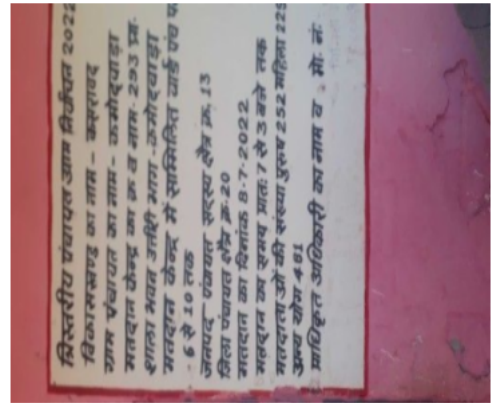 त्रिस्तरीय पंचायत आम निर्वाचन 2022
विकासखण्ड का नाम - कसरावद
ग्राम पंचायत का नाम -
मतदान केन्द्र का क्र. व नाम - 293 प्रा.
शाला भवन उत्तरी भाग
मतदान केन्द्र में सम्मिलित वार्ड पंच
6 से 10 तक
जनपद पंचायत सदस्य क्षेत्र क्र. 13
जिला पंचायत क्षेत्र क्र. 20
मतदान का दिनांक 8-7-2022
मतदान का समय प्रातः 7 से 3 बजे तक
मतदाताओं की संख्या पुरुष 252 महिला 229
कुल योग 481
प्राधिकृत अधिकारी का नाम व मो. नं.